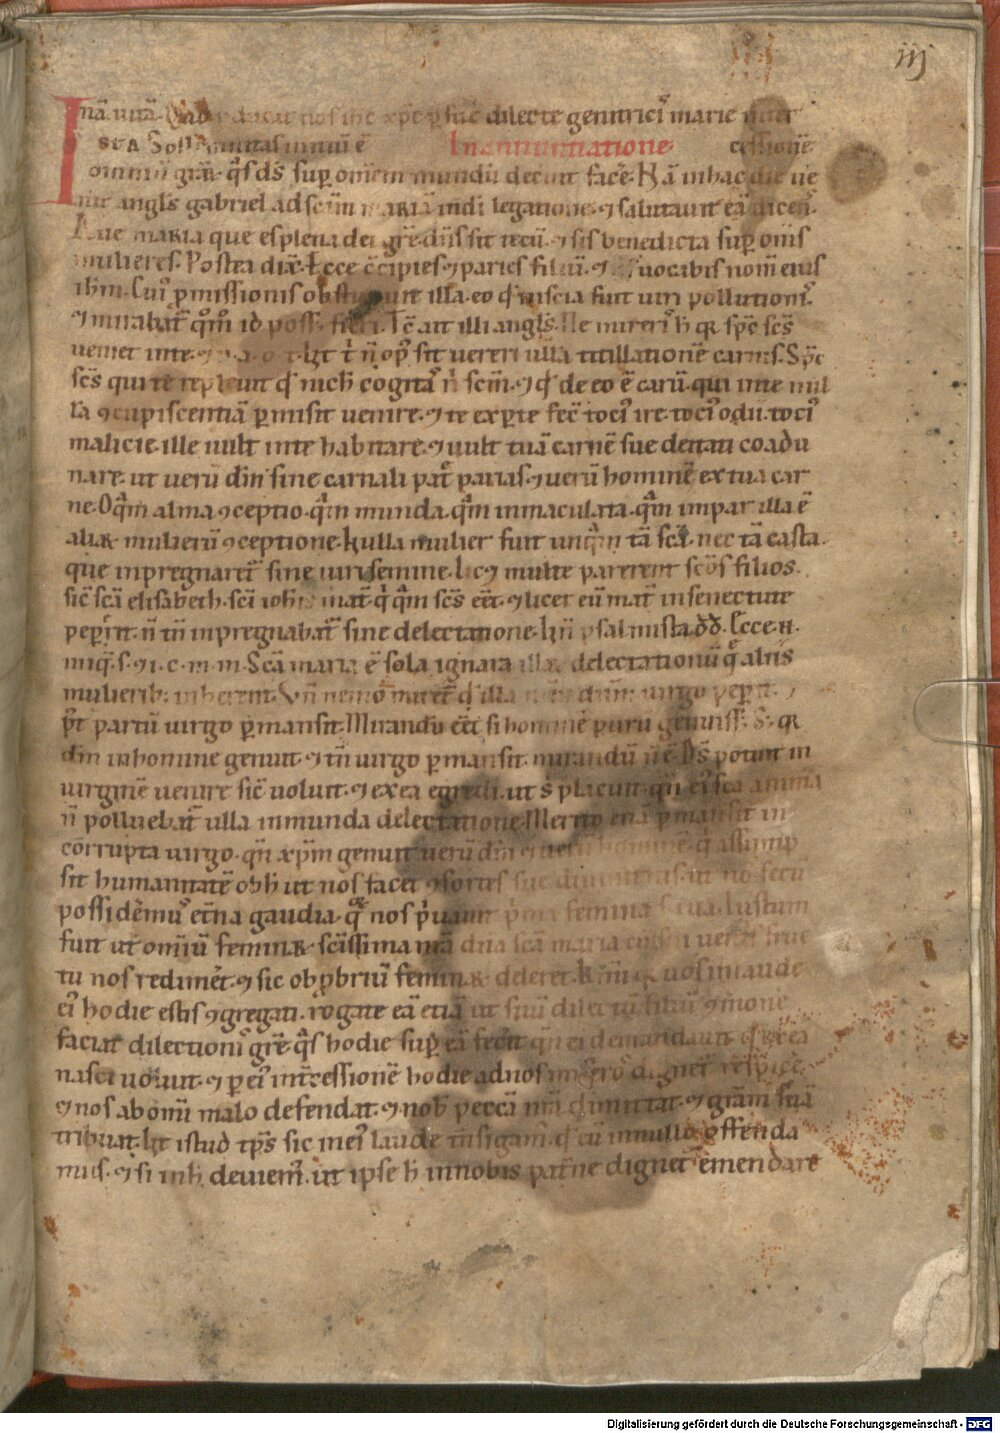 iij
nā. uitā. dilecte genitrici᷒ marie inter
sta Soll nitas in qui ē In annuntiatione cessionē
omniū grāꝝ. qͣs dꝰ suꝑ omnem mundū decuit facꝰe. Nā in hac die ue
nit angꝉs gabriel ad scām mariā indi legatione. ⁊ salutauit eā dicenꝰ.
Aue maria que es plena dei grē. dn̄s sit tecū. ⁊ sis benedicta suꝑ om̄s
mulieres. Postea dix̄. Ecce cꝯcipies ⁊ paries filiū. ⁊ uocabis nom̄ eius
ihm̄. Cui᷒ ꝓmissionis illa. eo qđ nescia fuit uiri pollutioniꝰ.
⁊ mirabat᷑ qͦm̄ id poss fieri. Tc̄ ait illi angꝉs. Ne mireriꝰ h̄ qꝛ spc̄ scs̄
ueniet inte. ⁊ u. a. o. t. uereri ulla titillationē carnis. Spc̄
scs̄ qui te repleuit qđ nich̄ cogitaꝰ n̄ scm̄. ⁊ qđ de eo ē carū. qui inte nul
la ꝯcupiscentiā ꝑmisit uenire. ⁊ te exꝑte fec̄ toci᷒ ire. toci᷒ odii. toci᷒
malicie. ille uult inte habitare. ⁊ uult tuā carnē sue deitati coadu
nare. ut uerū dm̄ sine carnali pat᷑ parias. ⁊ uerū hominē ex tua car
ne. O qͣm alma ꝯceptio. qͣm munda. qͣm inmaculata. qͣm impar illa ē
aliaꝝ mulierū ꝯceptione. Nulla mulier fuit unqͣm tā scā. nec tā casta.
que inpregnaret᷑ sine uiri semine. licꝫ multe parerent scōs filios.
sic̄ scā elisabeth. sci iohis mat᷑ qͥ qͣm scs̄ eēt. ⁊ licet eū mat᷑ in senectute
peꝑit. n̄ tn̄ inpregnabat᷑ sine delectatione. Un̄ psalmista dd̄. Ecce .n.
iniq̄. s. ⁊ i. c. m. m. Scā maria ē sola ignara illaꝝ delectationū q̄ aliis
mulierib; inherent. Vn̄ nemo qđ illa uirgo peꝑit. ⁊
pͦt partū uirgo ꝑmansit. Mirandū eēt si hominē purū genuiss. S; qꝛ
dm̄ in homine genuit. ⁊ tn̄ uirgo ꝑmansit. mirandū n̄ ē. Dꝰ potuit in
uirginē uenire sic̄ uoluit. ⁊ ex ea egredi. ut sͥ placuit. qn̄ ei᷒ scā anima
n̄ polluebat᷑ ulla inmunda delectatione. Merito etiā ꝑmansit in
corrupta uirgo. qn̄ xp̄m genuit uerū dm̄ ⁊ uerū hominē. qͥ assump
sit humanitatē obh̄ ut nos facet ꝯsortes sue diuinitatis. ut no secū
possidem᷒ et̄na gaudia. qͣ nos pͥuauit pͥma femina Eua. Iustum
fuit ut om̄iū feminaꝝ scīssima mr̄a dn̄a scā maria
tu nos redim̄et. ⁊ sic obꝓbriū feminaꝝ deleret. uos in laude
ei᷒ hodie estis ꝯgregati. rogate eā etiā ut suū dilectū filiū
faciat dilectioni᷒ grē. qͣs hodie suꝑ eā fecit. qn̄ ei demandauit qđ ex ea
nasci uoluit. ⁊ ꝑ ei᷒ int᷑cessionē hodie ad nos misero dignet᷑ respic̄e.
⁊ nos ab omi malo defendat. ⁊ nob᷒ peccā nr̄a dimittat. ⁊ grām suā
tribuat. Ut istud tp̄s sic in ei᷒ laude qđ eū in nullo offenda
mus. ⁊ si inh̄ deuiem᷒. ut ipse h̄ in nobis pat᷑ne dignet᷑ emendare
Digitalisierung gefördert durch die Deutsche Forschungsgemeinschaft - DFG